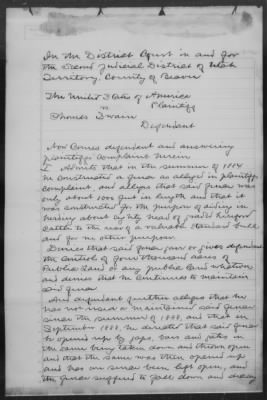 In the District Court in and for
the Second Judicial District of Utah
Territory, County of Beaver
The United States of America
Plaintiff
vs
Thomas Swain
Defendant
Now Comes defendant and answering
plaintiffs complaint herein
I Admits that in the summer of 1884
he constructed a fence as alleged in plaintiffs
complaint and alleges that said fence was
only about 1000 feet in length and that it
was constructed for the purpose of aiding in
herding about eighty head of graded
cattle to the use of a valuable standard bull
and for no other purpose
Denies that said fence gave or gives defendant
the control of four thousand acres of
Public land or any public land whatever
and denies that he continues to maintain
said fence
And defendant further alleges that he
has not used or maintained said fence
since the summer of 1888, and that in
September 1888, he directed that said fence
be opened up by gaps, bars and gates in
the same being taken down and thrown open
and that the same was then opened up
and has ever since been left open, and
the fence suffered to fall down and decay